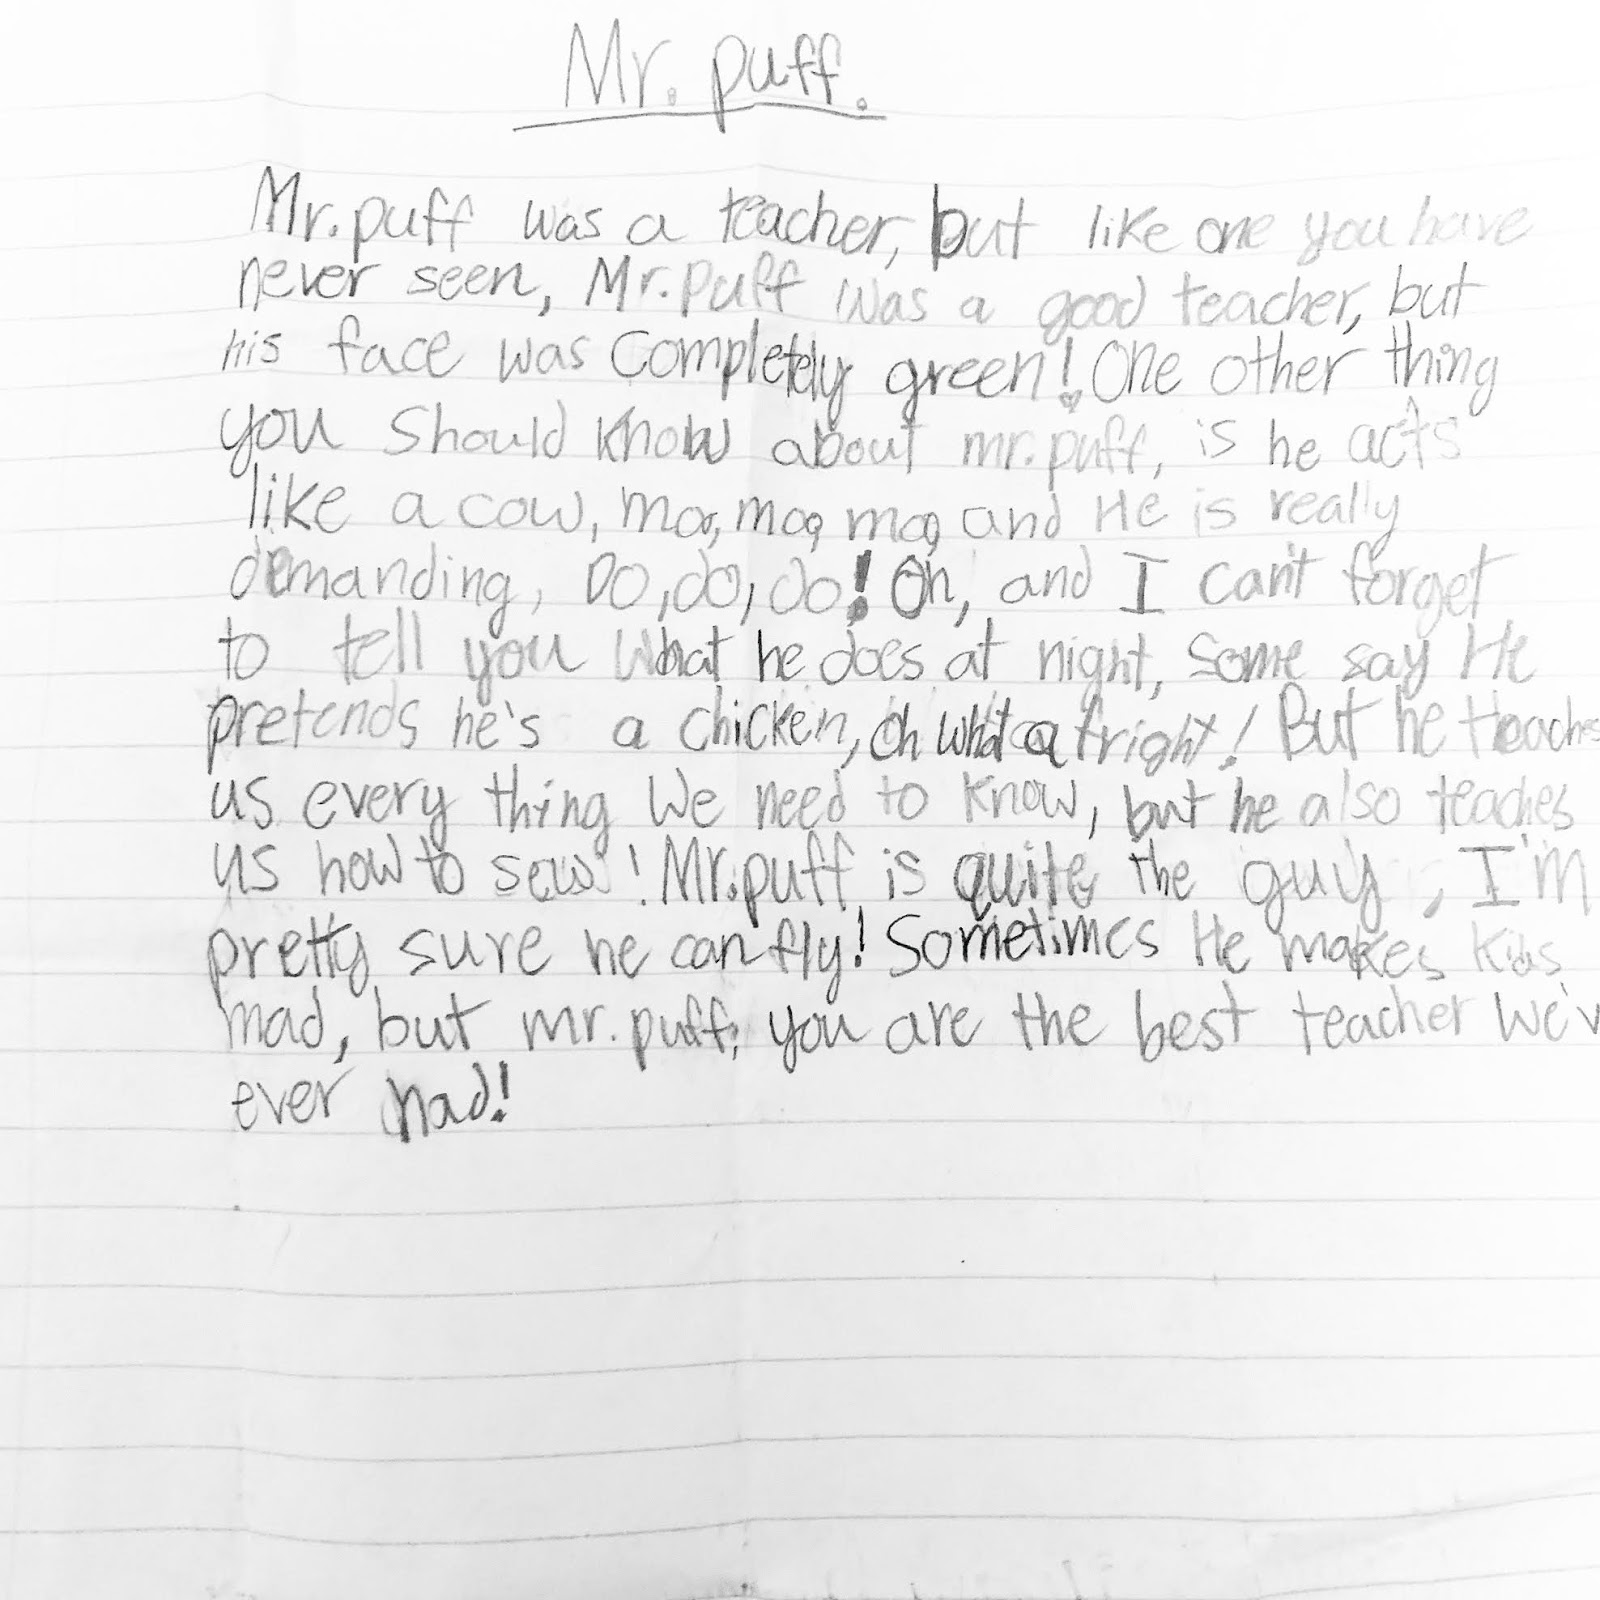 Mr. puff.
Mr. puff was a teacher, but like one you have
never seen, Mr. Puff was a good teacher, but
his face was completely green! One other thing
you should know about mr. puff, is he acts
like a cow, moo, moo, moo, and He is really
demanding, Do, do, do! Oh, and I can't forget
to tell you what he does at night, some say He
pretends he's a chicken, oh what a fright! But he teaches
us every thing We need to know, but he also teaches
us how to sew! Mr. puff is quite the guy, I'm
pretty sure he can fly! Sometimes He makes kids
mad, but mr. puff, you are the best teacher We'v
ever had!